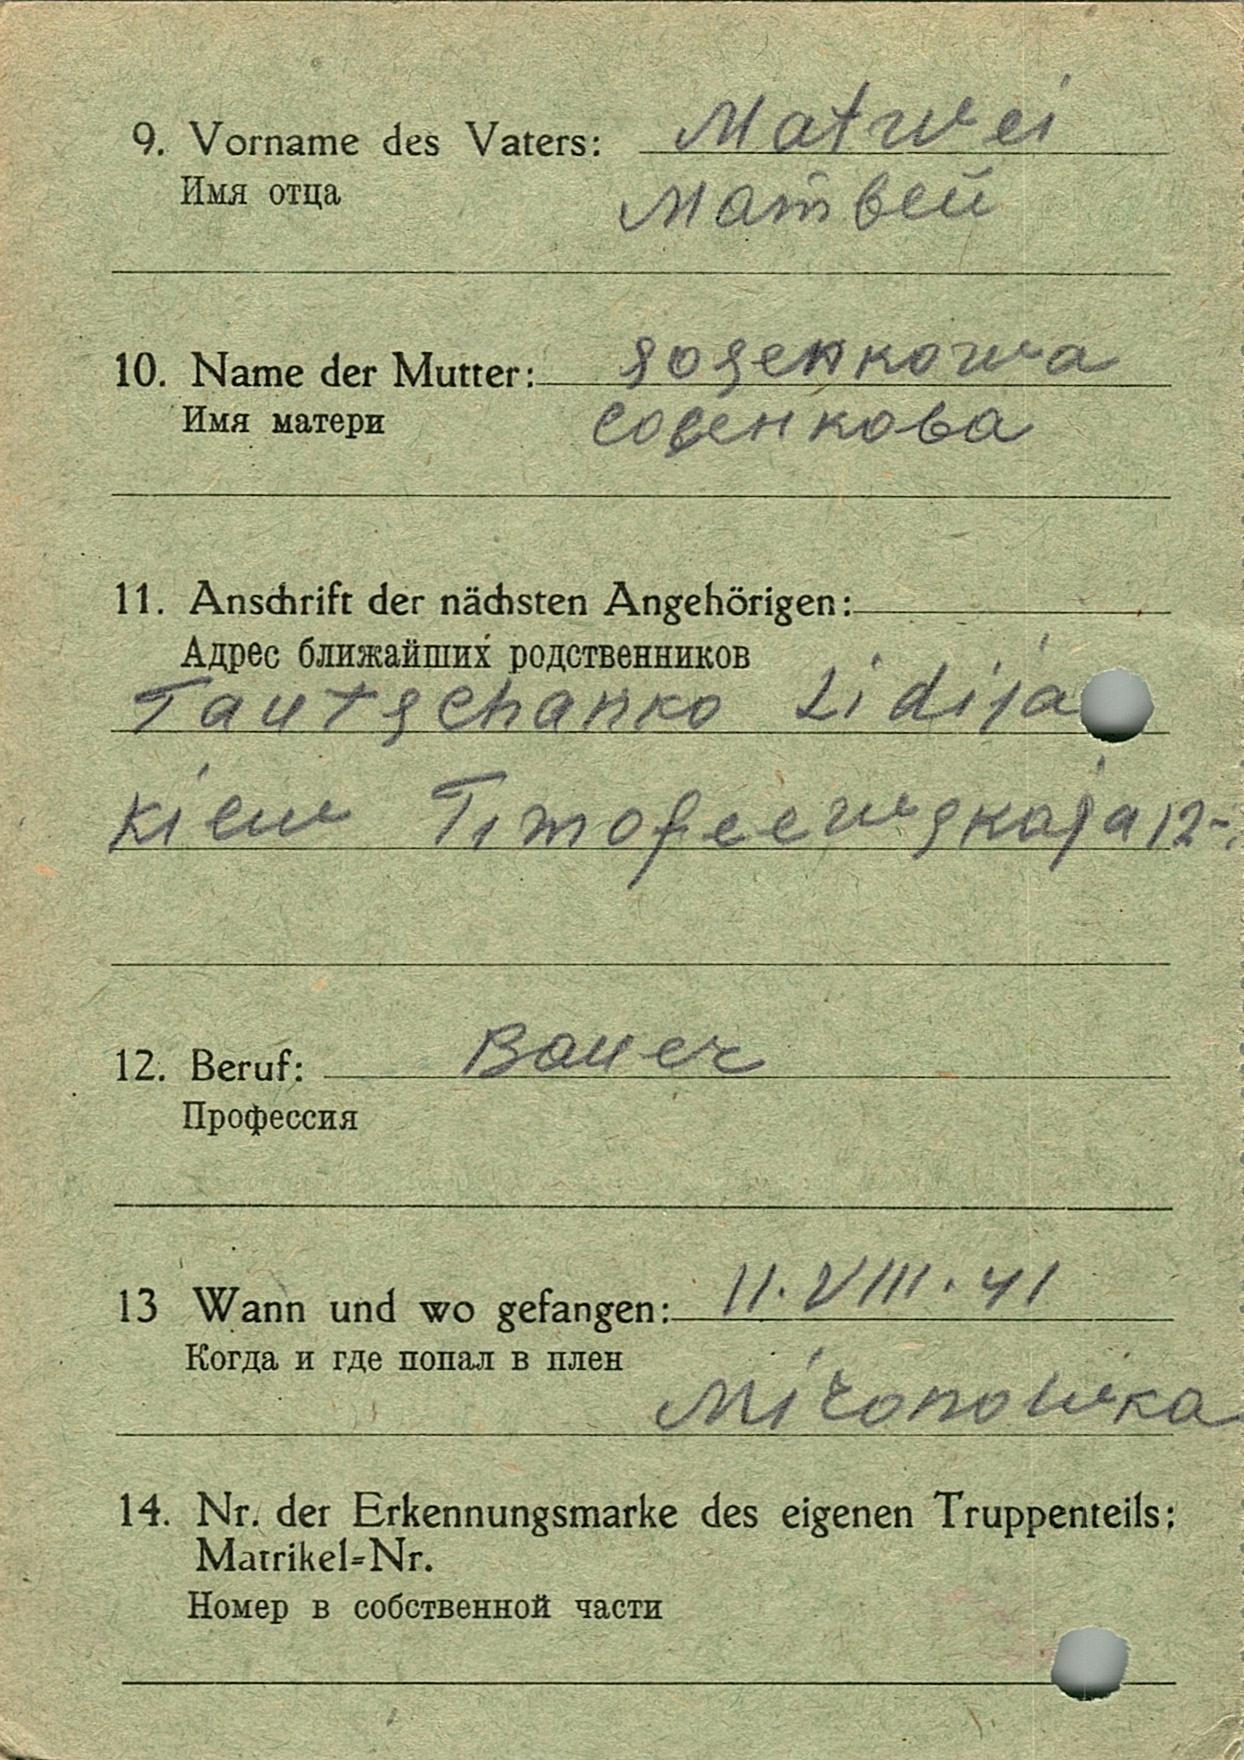 9. Vorname des Vaters: Matwei
Имя отца Матвей
10. Name der Mutter: Sosenkowa
Имя матери Сосенкова
11. Anschrift der nächsten Angehörigen:
Адрес ближайших родственников
Tautschanko Lidija
Kiew Timofeewskaja 12-
12. Beruf: Bauer
Профессия
13 Wann und wo gefangen: 11. VIII. 41
Когда и где попал в плен
Mironowka
14. Nr. der Erkennungsmarke des eigenen Truppenteils:
Matrikel=Nr.
Номер в собственной части